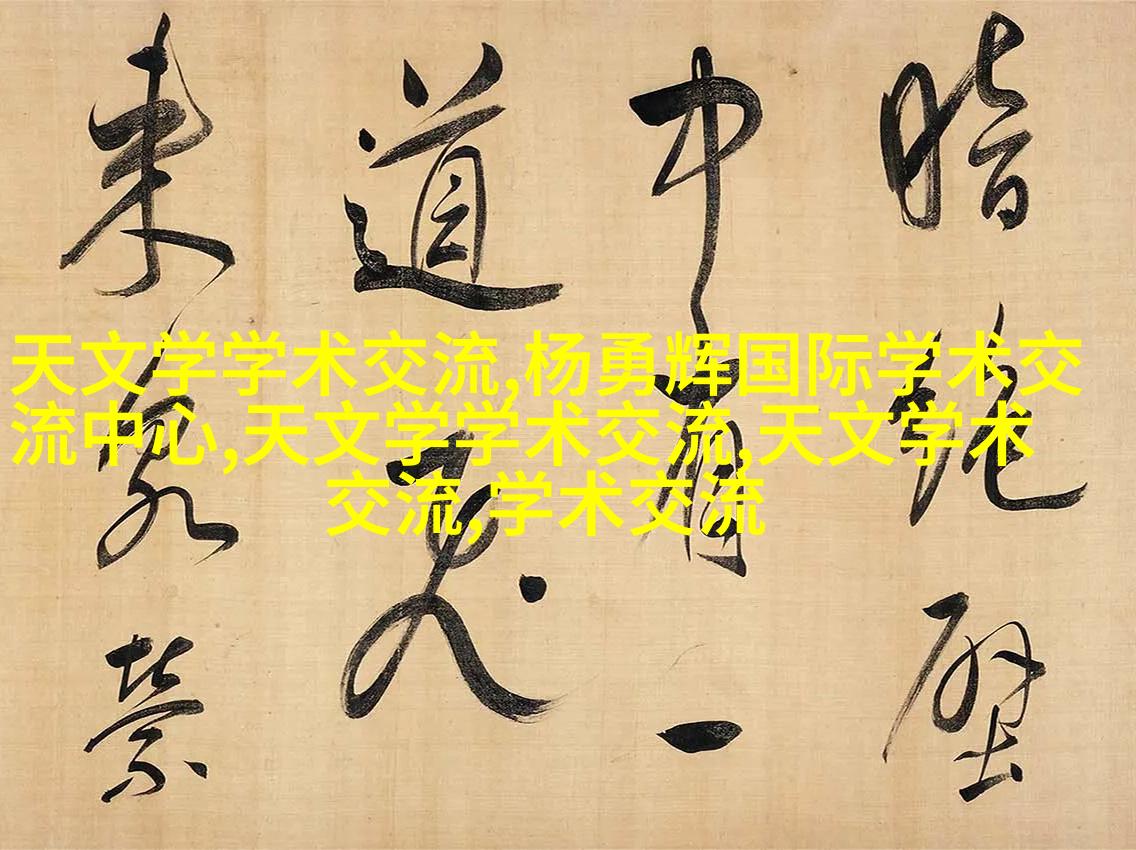 天文学学术交流,杨勇辉国际学术交
流中心,天文学学术交流,天文学术
交流,学术交流
暗絶
中有一
道飛
来泉萦